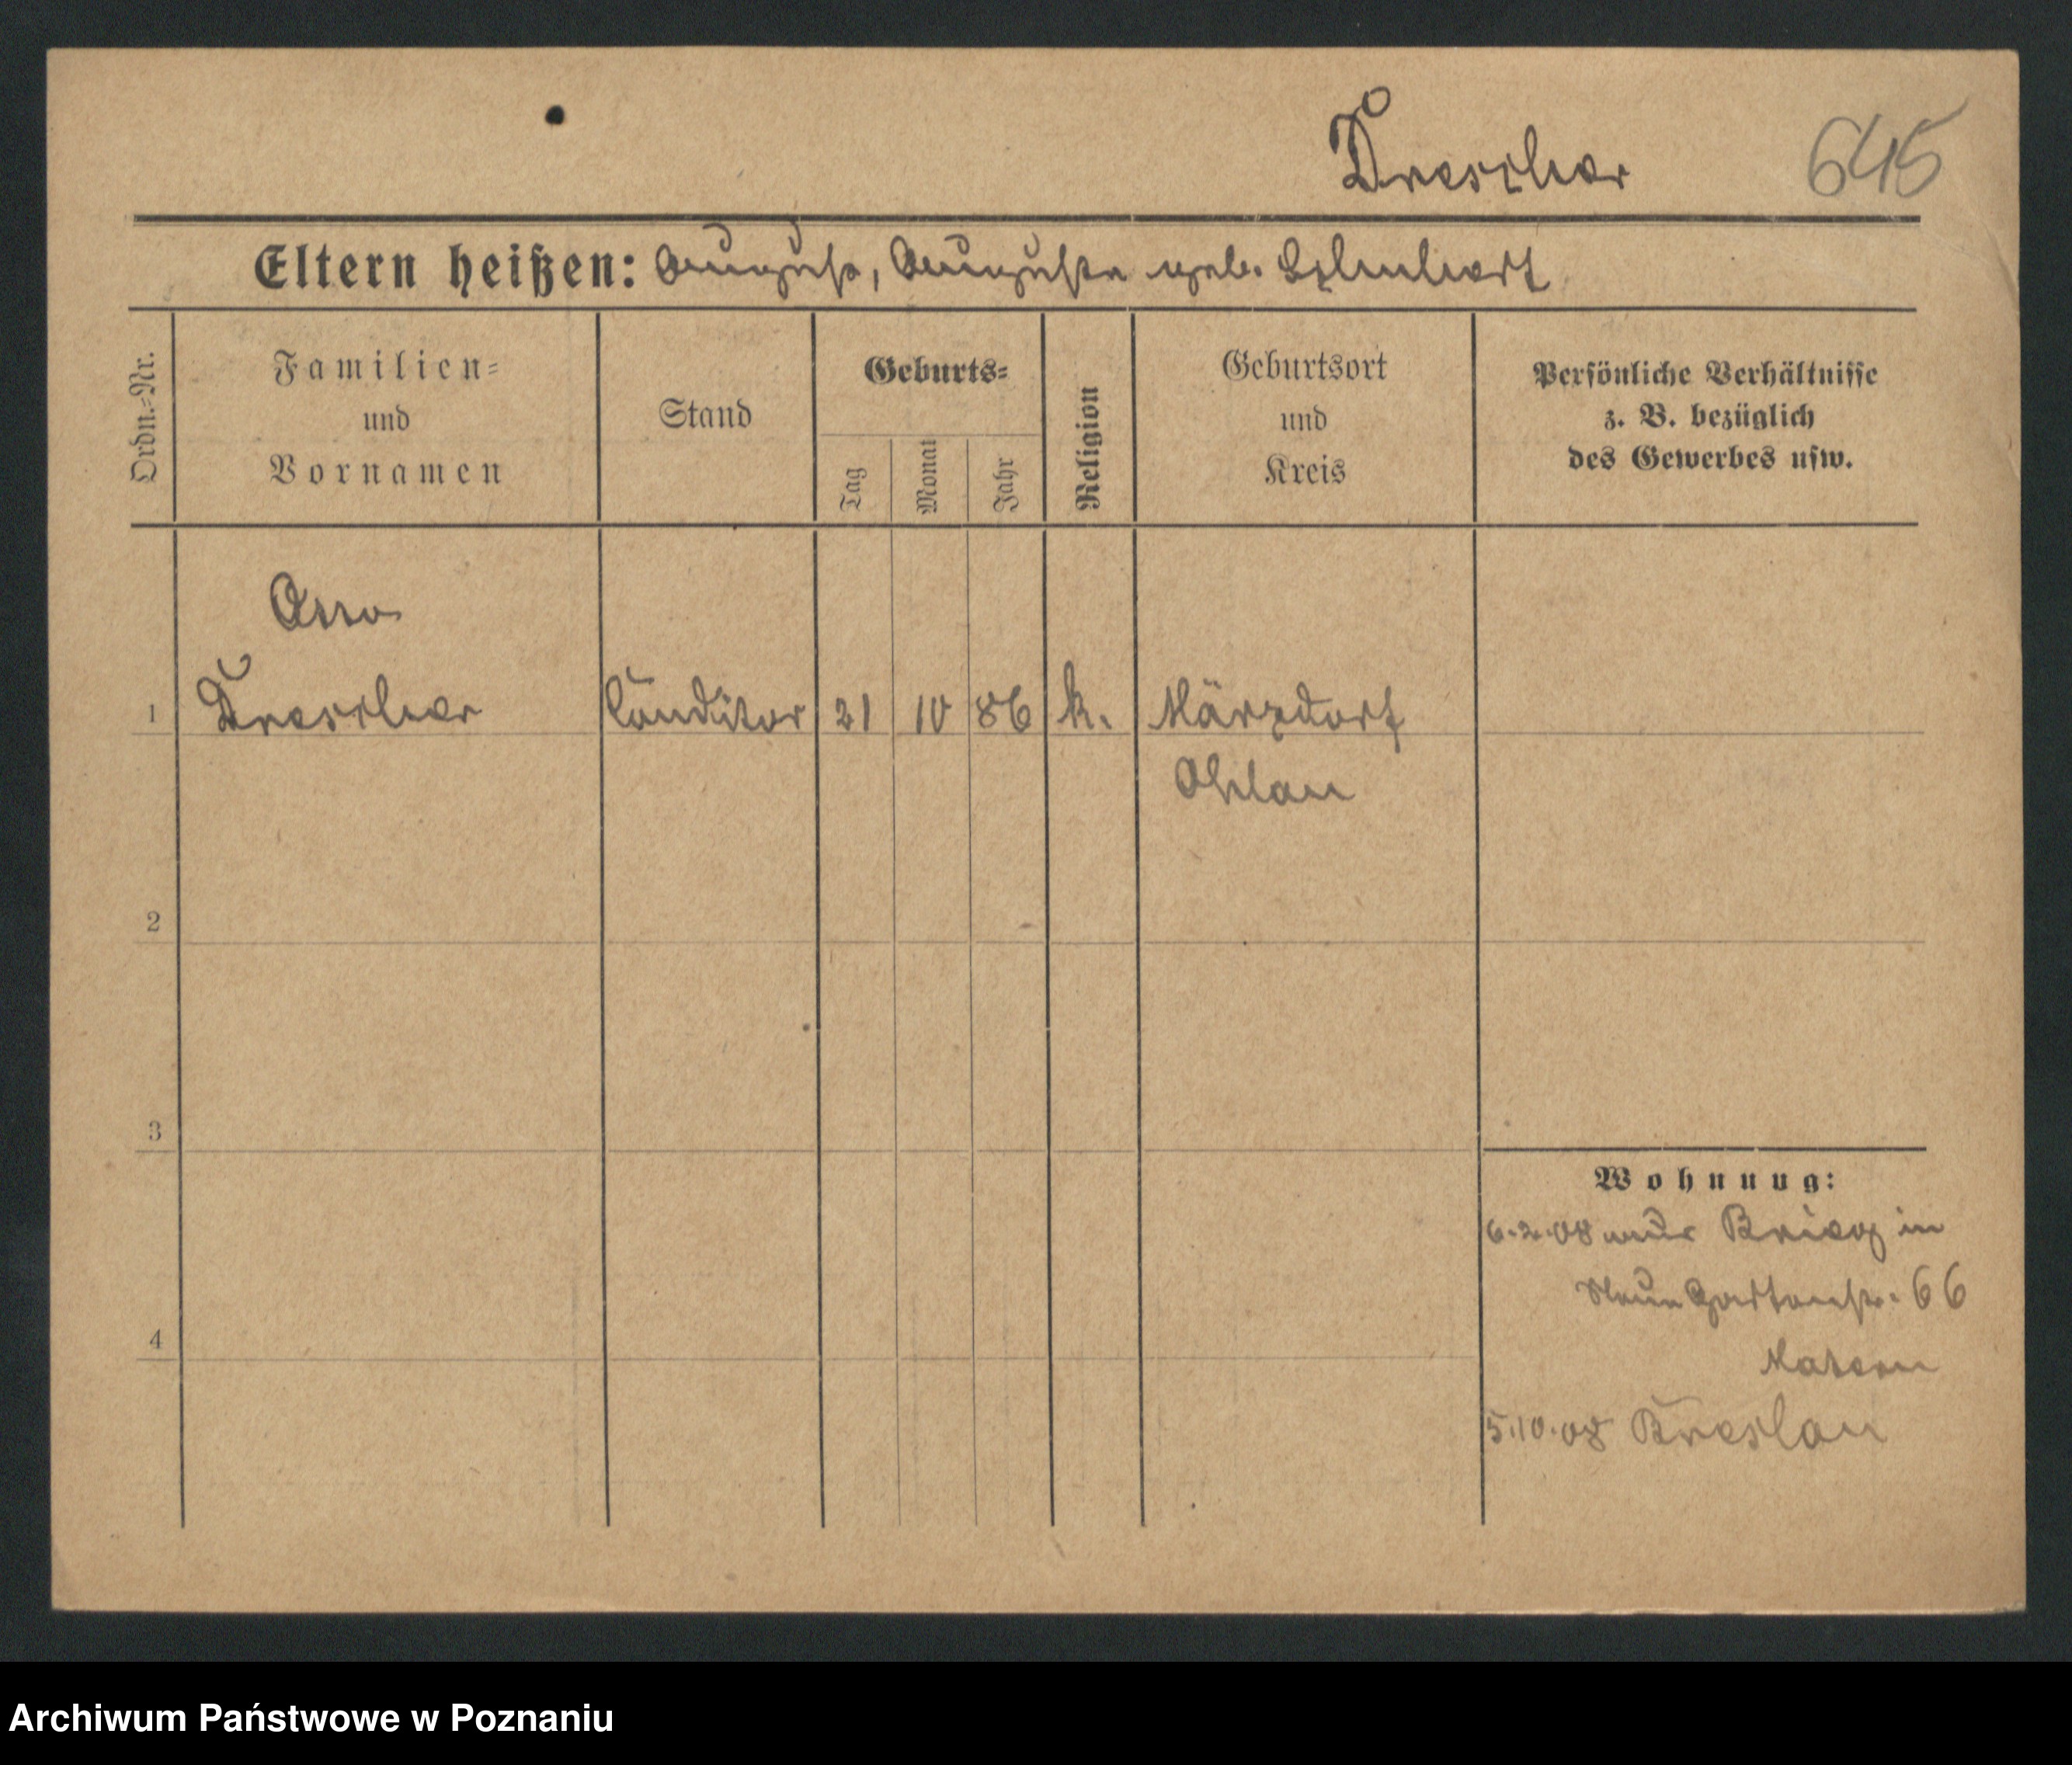 Drescher 645
Eltern heißen: August, Auguste geb.
Ordn.-Nr.
Familien-
und
Vornamen
Stand
Geburts-
Tag
Monat
Jahr
Religion
Geburtsort
und
Kreis
Persönliche Verhältnisse
z. B. bezüglich
des Gewerbes usw.
Otto
1 Drescher Conditor 21 10 86 k. Märzdorf
Ohlau
2
3
4
Wohnung:
6.2.08 aus Brieg in
Neue Gartenstr. 66
5.10.08 Breslau
Archiwum Państwowe w Poznaniu